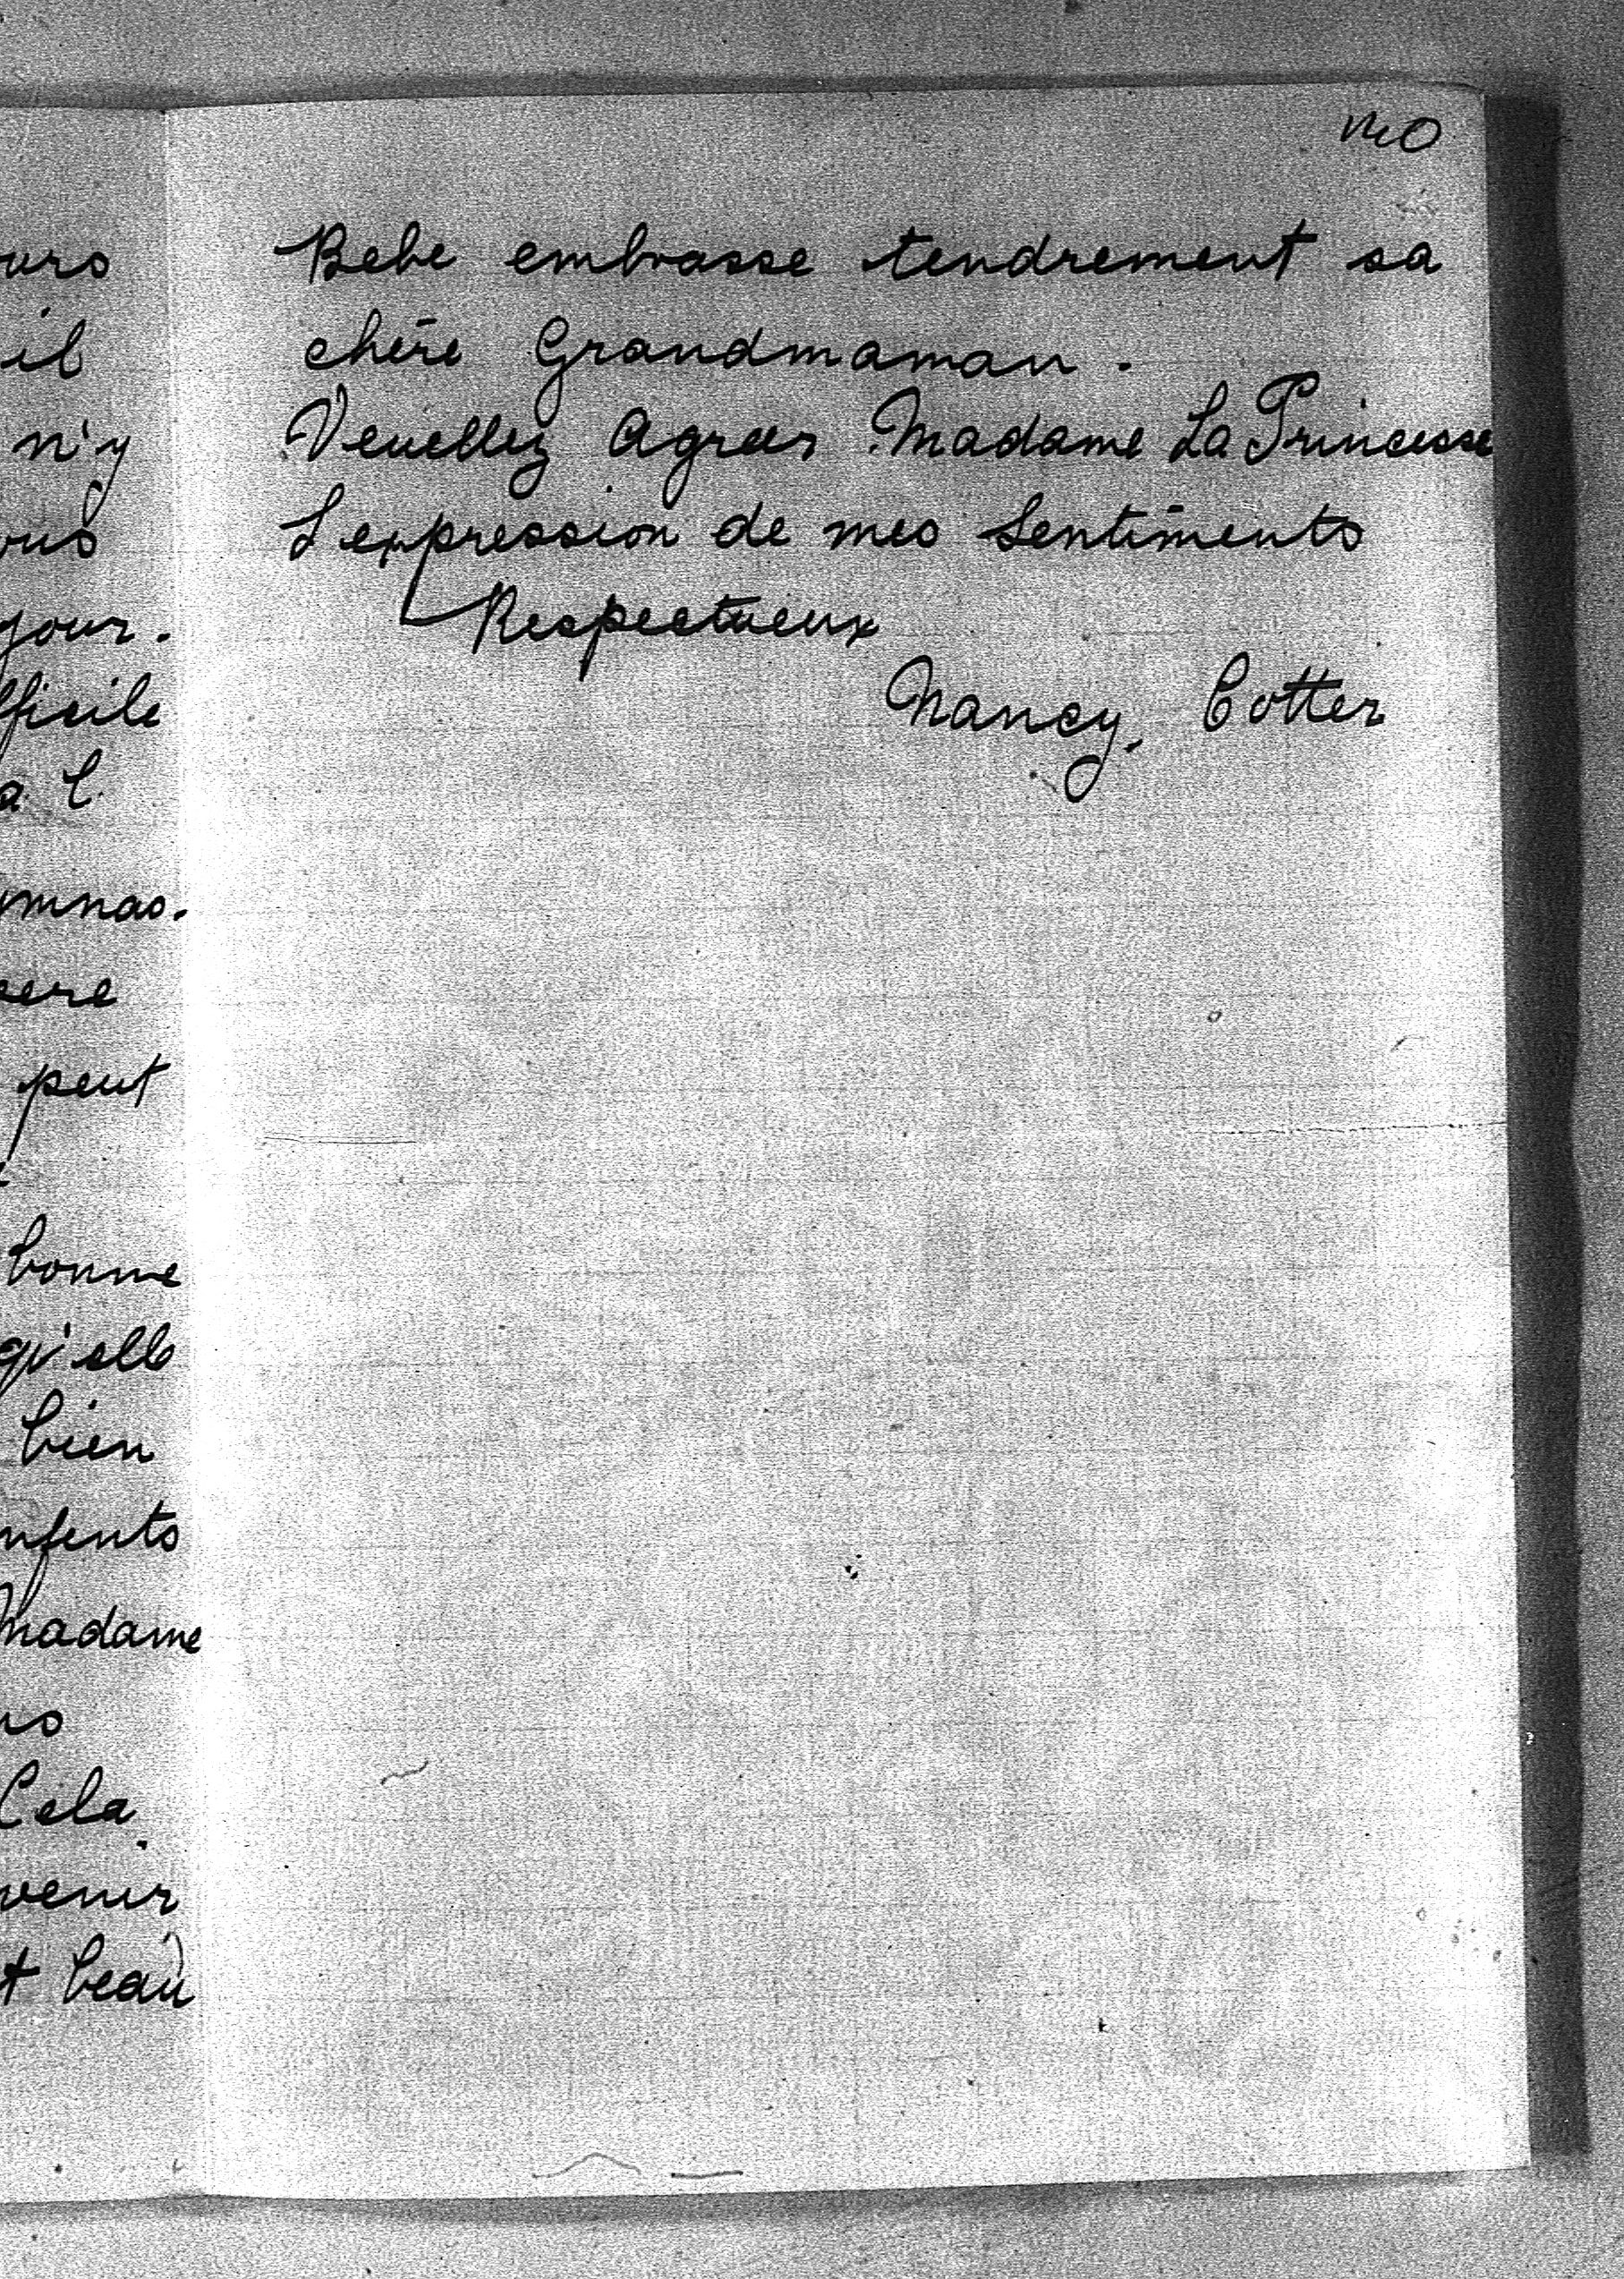 urs
il
n'y
ous
jour.
fficile
a l.
mnas.
pere
peut
bonne
qu'elle
bien
nfents
Madame
us
Cela
venir
t beau
Bebe embrasse tendrement sa
chère Grandmaman.
Veuellez Agreer Madame La Princesse
L expression de mes Sentiments
Respectueux
Nancy. Cotter